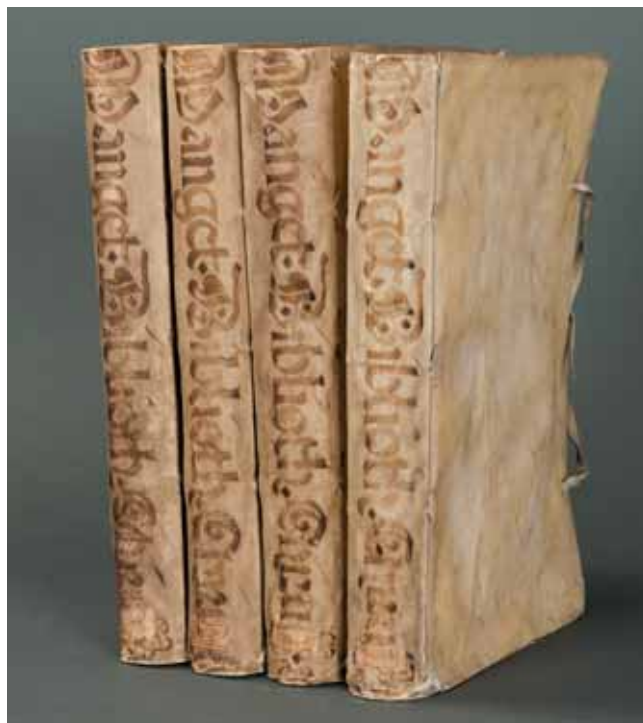 Manget. Biblioth.
Manget. Biblioth. Chiru
Manget. Biblioth. Chiru
Manget. Biblioth. Chiru